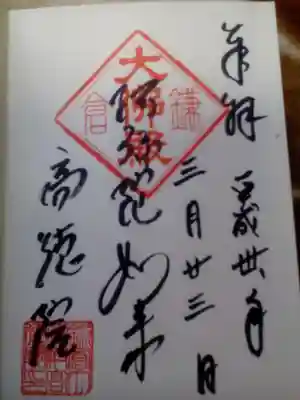 奉拝 平成廿六年
三月廿三日
鎌倉
大佛殿
阿弥陀如来
高徳院